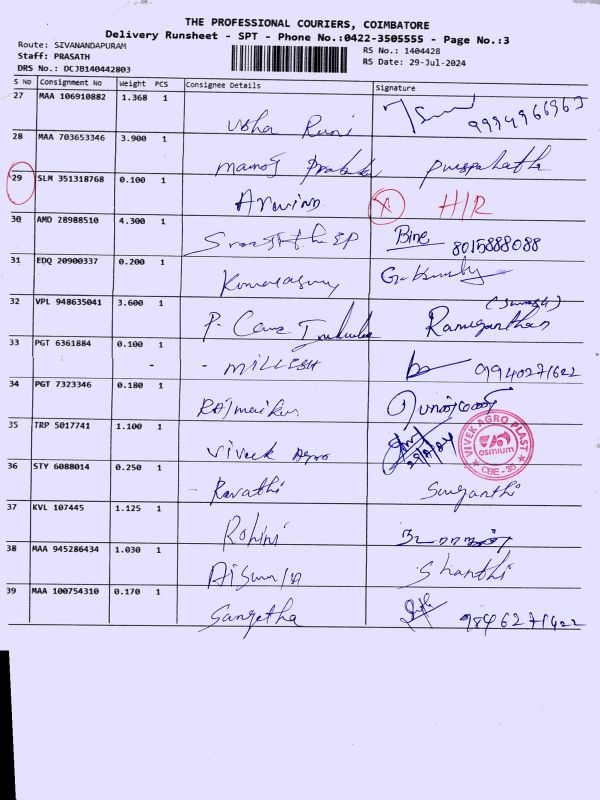 THE PROFESSIONAL COURIERS, COIMBATORE
Delivery Runsheet - SPT - Phone No.:0422-3505555 - Page No.:3
Route: SIVANANDAPURAM
Staff: PRASATH
DRS No.: DCJB140442803
RS No.: 1404428
RS Date: 29-Jul-2024
S No Consignment No Weight PCS Consignee Details Signature
27 MAA 106910882 1.368 1 Usha Rani
28 MAA 703653346 3.900 1 Manoj
29 SLM 351318768 0.100 1 Aravind H/R
30 AMD 28988510 4.300 1 8015888088
31 EDQ 20900337 0.200 1
32 VPL 948635041 3.600 1 P.
33 PGT 6361884 0.100 1 - - MILLESH 9940271622
34 PGT 7323346 0.180 1
35 TRP 5017741 1.100 1 Viveek Agro
VIVEK AGRO PLAST
osmium
CBE - 35
36 STY 6088014 0.250 1 Revathi Suganthi
37 KVL 107445 1.125 1 Rohini
38 MAA 945286434 1.030 1 Shanthi
39 MAA 100754310 0.170 1 Sangetha 9846271622